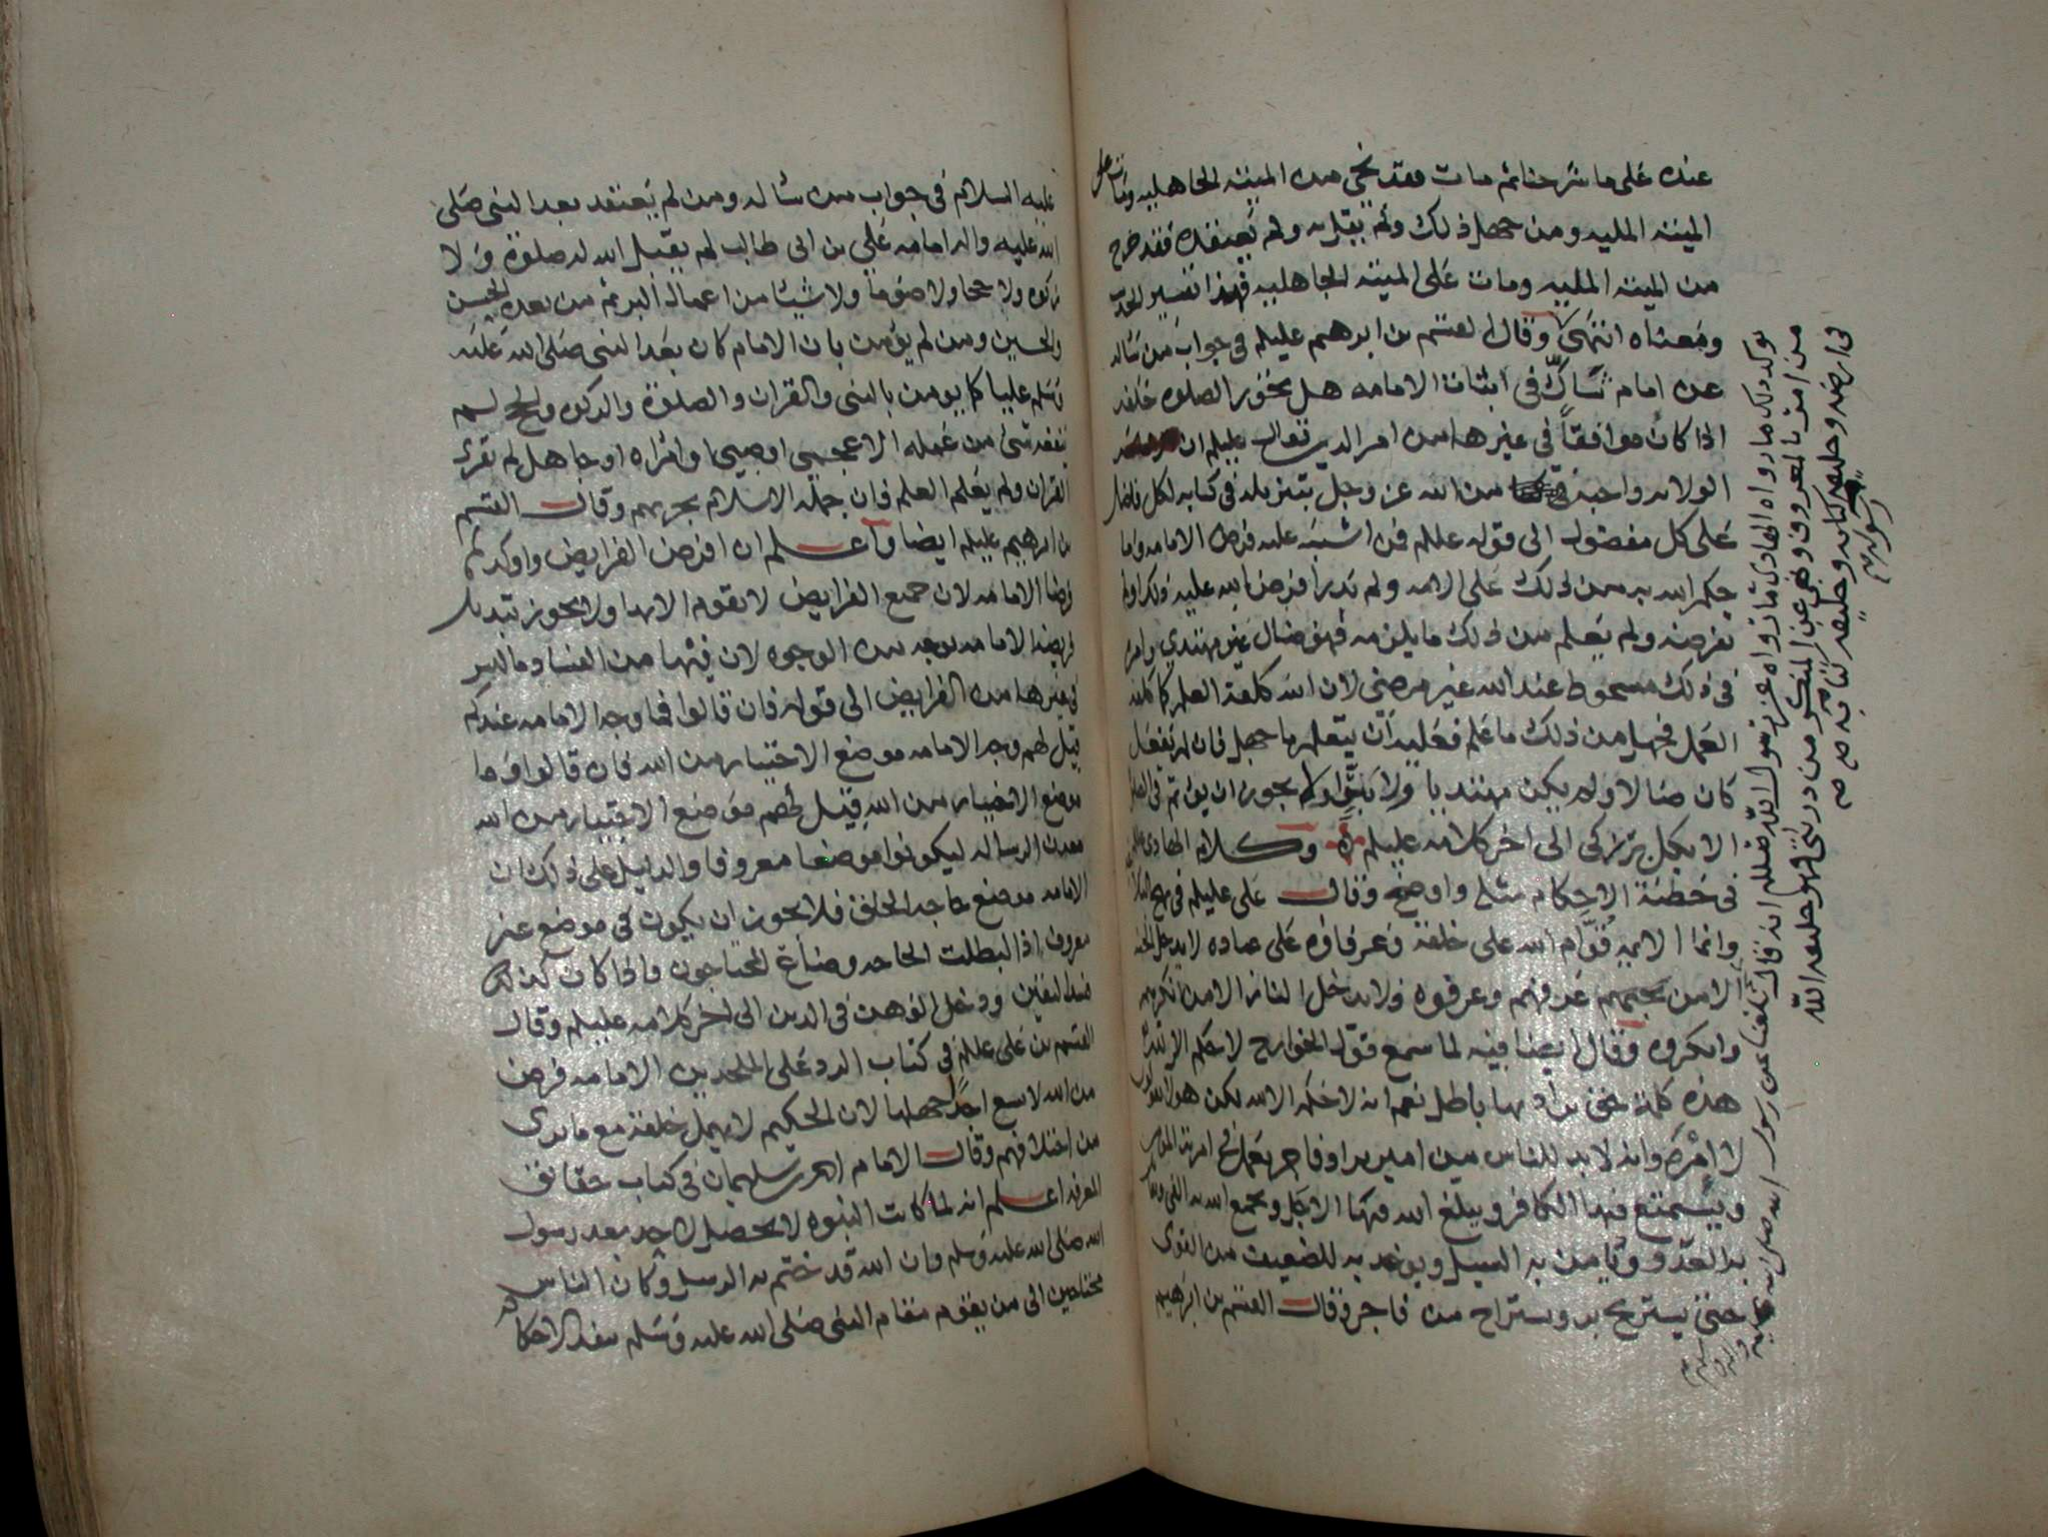 عنده على ما شرحنا ثم مات فقد نجى من الميتة الجاهلية ومات على
الميتة الملية ومن جهل ذلك ولم يقل به ولم يعتقده فقد خرج
من الميتة الملية ومات على الميتة الجاهلية فهذا تفسير الحديث
ومعناه انتهى وقال القسم بن ابرهيم عليلم في جواب من ساله
عن امام شاك في اثبات الامامه هل يجوز الصلوه خلفه
اذا كان موافقا في غيرها من امر الدين فقال عليلم ان
الولايه واجبة من الله عز وجل بتنزيله في كتابه لكل فاضل
على كل مفضول الى قوله عليلم فمن اشتبه عليه فرض الامامه وما
حكم الله به من ذلك على الامه ولم يدر افرض الله عليه ذلك او لم
يفرضه ولم يعلم من ذلك ما يلزمه فهو ضال غير مهتدي وامره
في ذلك مسخوط عند الله غير مرضي لان الله كلفه العلم كما كلفه
العمل فجهل من ذلك ما علم فعليه ان يتعلم ما جهل فان لم يفعل
كان ضالا ولم يكن مهتديا ولا برا ولا يجوز ان يؤتم في الصلوة
الا بكل بر زكي الى اخر كلامه عليلم وكلام الهادي عليلم
في خطبة الاحكام مثله واوضح وقال علي عليلم في نهج البلاغه
وانما الايمه قوام الله على خلقه وعرفاؤه على عباده لا يدخل الجنه
الا من عرفهم وعرفوه ولا يدخل النار الا من انكرهم
وانكروه وقال ايضا فيه لما سمع قول الخوارج لا حكم الا لله
هذه كلمة حق يراد بها باطل نعم انه لا حكم الا لله لكن هؤلاء يقولون
لا امره وانه لا بد للناس من امير بر او فاجر يعمل في امرته المومن
ويستمتع فيها الكافر ويبلغ الله فيها الاجل ويجمع الله به الفي ويقاتل
به العدو وتامن به السبل ويوخذ به للضعيف من القوى
حتى يستريح بر ويستراح من فاجر وقال القسم بن ابرهيم
يوكد ذلك ما رواه الهادي فيما رواه عن رسول الله صلعم انه قال
من امر بالمعروف ونهى عن المنكر من ذريتي فهو خليفه الله
في ارضه وخليفه كتابه وخليفه
رسوله
بلغنا عن رسول الله صلى الله عليه واله وسلم
عليه السلام في جواب من ساله ومن لم يعتقد بعد النبي صلى
الله عليه واله امامه علي بن ابي طالب لم يقبل الله له صلوة ولا
زكوه ولا حجا ولا صوما ولا شيئا من اعمال البر ثم من بعده الحسن
والحسين ومن لم يؤمن بان الامام كان بعد النبي صلى الله عليه
وسلم عليا كما يومن بالنبي والقران والصلوة والزكوه والحج لم
ينفعه شي من عمله الا عجمي او صبي او امراه او جاهل لم يقرا
القران ولم يعلم العلم فان جملة الاسلام يجزيهم وقال القسم
بن ابرهيم عليلم ايضا واعلم ان افرض الفرايض واوكدها
فرضا الامامه لان جميع الفرايض لا تقوم الا بها ولا يجوز تبديل
فريضه الامامه بوجه من الوجوه لان فيها من الفساد ما ليس
في غيرها من الفرايض الى قوله فان قالوا فما وجه الامامه عندكم
قيل لهم وجه الامامه موضع الاختيار من الله فان قالوا وما
موضع الاختيار من الله قيل لهم موضع الاختيار من الله
معدن الرساله ليكونوا موضعا معروفا والدليل على ذلك ان
الامامه موضع حاجه الخلق فلا يجوز ان يكون في موضع غير
معروف اذا لبطلت الحاجه وضاع المحتاجون فاذا كان كذلك
فسد اليقين ودخل الوهن في الدين الى اخر كلامه عليلم وقال
القسم بن علي عليلم في كتاب الرد على الملحدين الامامه فرض
من الله لا يسع احدا جهلها لان الحكيم لا يهمل خلقه مع ما يرى
من اختلافهم وقال الامام احمد بن سليمان في كتاب حقائق
المعرفه اعلم انه لما كانت النبوه لا تحصل لاحد بعد رسول
الله صلى الله عليه وسلم وان الله قد ختم به الرسل وكان الناس
محتاجين الى من يقوم مقام النبي صلى الله عليه وسلم